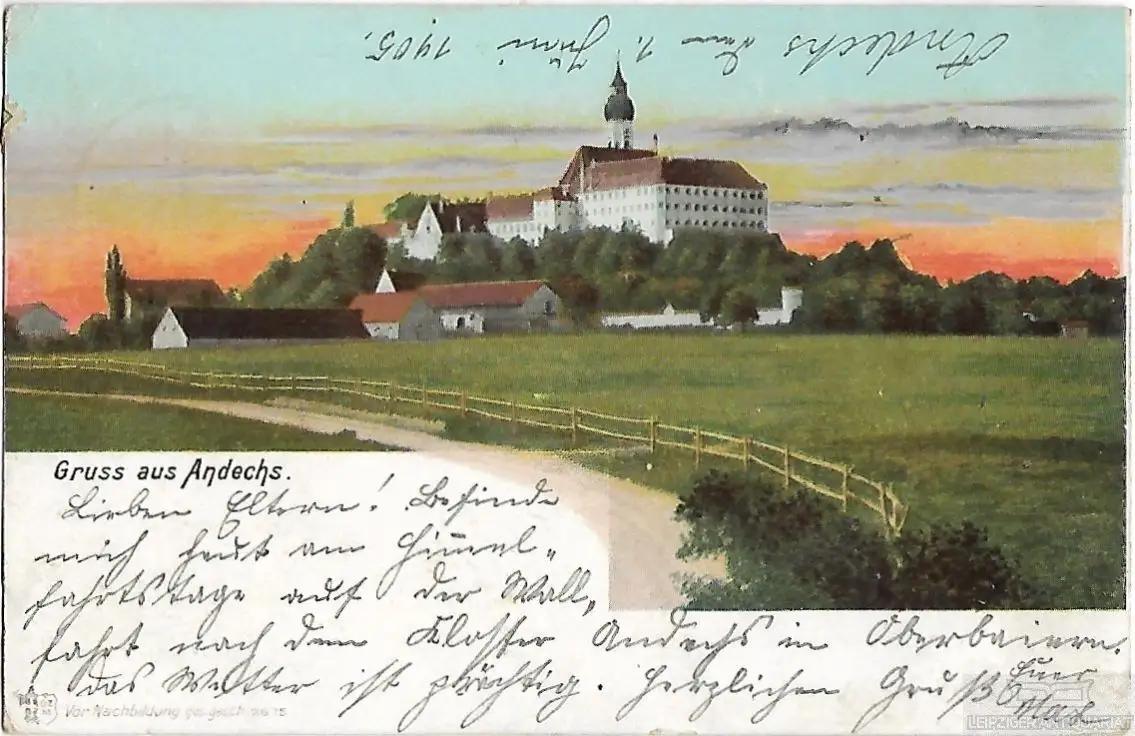 Andechs den 1. Juni 1905.
Gruss aus Andechs.
Lieben Eltern! Befinde
mich heut am Himmel-
fahrtstage auf der Wall-
fahrt nach dem Kloster Andechs in Oberbaiern.
das Wetter ist prächtig. Herzlichen Gruß Euer
Max
Vor Nachbildung ges. gesch.
LEIPZIGER ANTIQUARIAT